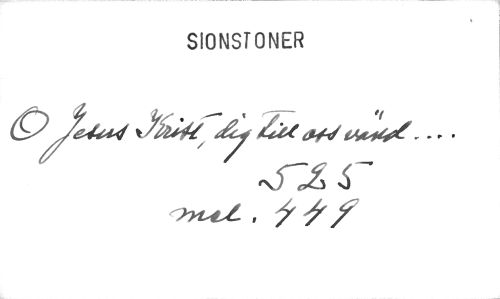 SIONSTONER
O Jesus Krist, dig till oss vänd....
525
mel. 449